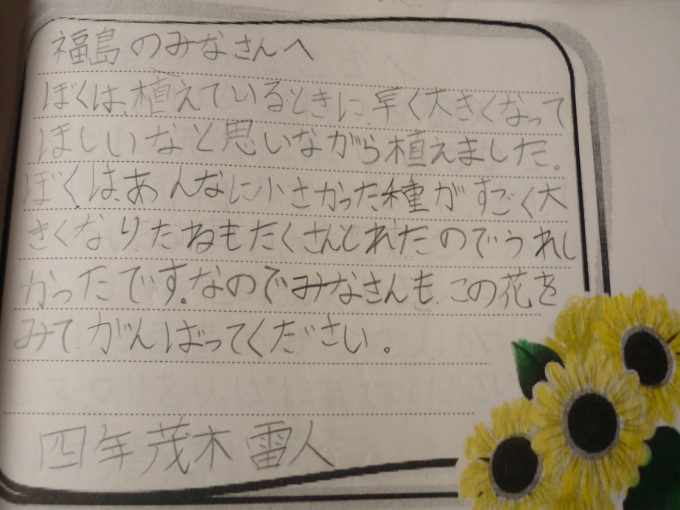 福島のみなさんへ
ぼくは、植えているときに、早く大きくなって
ほしいなと思いながら植えました。
ぼくは、あんなに小さかった種がすごく大
きくなりたねもたくさんとれたのでうれし
かったです。なのでみなさんも、この花を
みてがんばってください。
四年茂木雷人